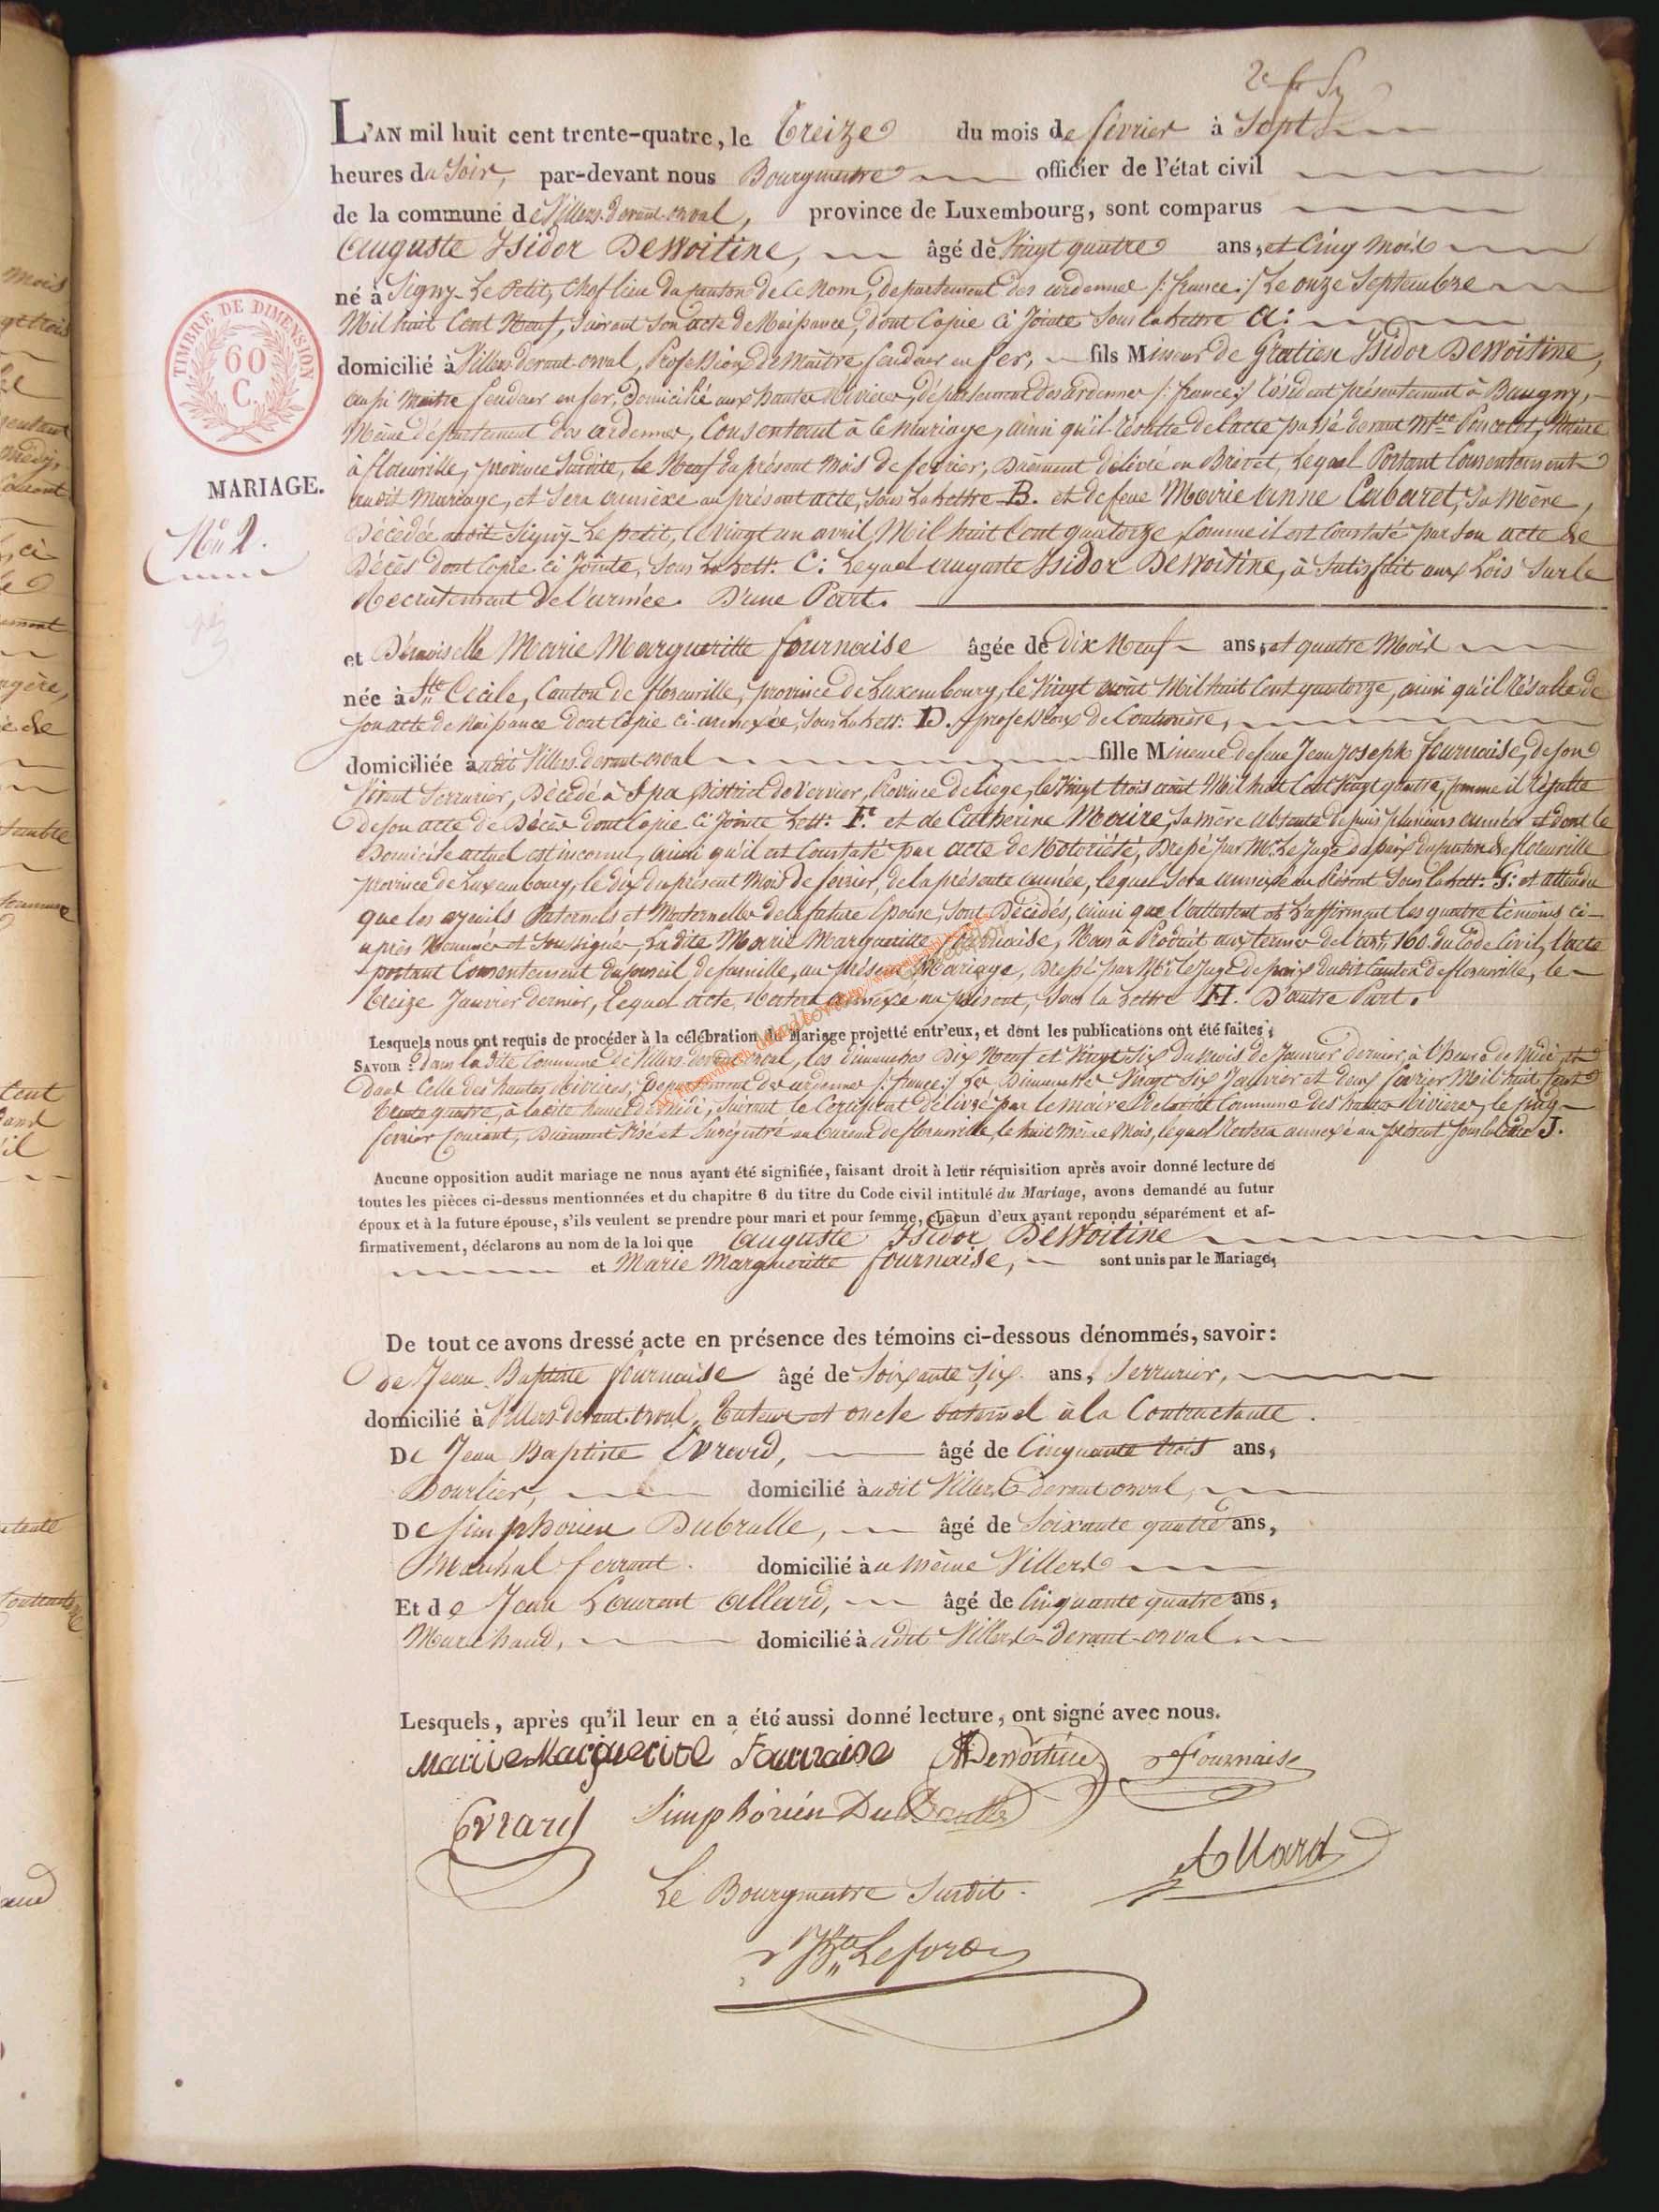 L'AN mil huit cent trente-quatre, le treize du mois de fevrier à Sept
heures du Soir, par-devant nous Bourgmestre officier de l'état civil
de la commune de Villers-devant-orval, province de Luxembourg, sont comparus
Auguste Isidor Dewoitine, âgé de Vingt quatre ans, et Cinq mois
né à Signy-Le Petit, Chef lieu du Canton de Ce Nom, departement des ardennes /: france :/ Le onze Septembre
Mil huit Cent Neuf, Suivant Son acte de Naissance, dont Copie Ci Jointe Sous la Lettre A:
domicilié à Villers-devant-orval, Profession de Maître fendeur en fer, fils Mineur de Gratien Isidor Dewoitine,
aussi Maitre fendeur en fer, Domicilié aux hautes Rivieres, département des ardennes /: france :/ Résident présentement à
Même département des ardennes, Consentant à Ce Mariage, ainsi qu'il Résulte de l'acte passé devant Poncelet, Notaire
à florenville, province Susdite, le Neuf du présent Mois de fevrier, Dûment délivré en Brevet, Lequel Portant Consentement
audit Mariage, et Sera annexé au présent acte, Sous La Lettre B. et de feue Marie anne Cabaret, Sa Mère,
MARIAGE.
No 2.
Décédée audit Signy-Le petit, le Vingt un avril, Mil huit Cent quatorze, Comme il est Constaté par Son acte de
Décès dont Copie Ci Jointe, Sous La Lett. C: Lequel auguste Isidor Dewoitine, à Satisfait aux Lois Sur le
Recrutement de l'armée. D'une Part.
et Démoiselle Marie Margueritte fournaise âgée de Dix Neuf ans, et quatre Mois
née à Ste Cecile, Canton de florenville, province de Luxembourg, le Vingt août Mil huit Cent quatorze, ainsi qu'il Résulte de
Son acte de Naissance dont Copie Ci-annexée, Sous La Lett: D. Profession de Couturière,
domiciliée audit Villers-devant-orval fille Mineure de feue Jean Joseph fournaise, de Son
Vivant Serrurier, Décédé à Spa District de Vervier, Province de Liege, le Vingt trois août Mil huit Cent Vingt quatre, Comme il Résulte
de Son acte de Décès dont Copie Ci Jointe Lett: F. et de Catherine Maire, Sa mère absente depuis plusieurs années et dont le
Domicile actuel est inconnu, ainsi qu'il est Constaté par acte de Notoriété, Dressé par Mr. Le Juge de paix du Canton de florenville
province de Luxembourg, le dix du présent Mois de fevrier, de la présente année, lequel Sera annexé au Présent Sous la Lett: G: et attendu
que les ayeuls Paternels et Maternelles de la future Epouse, Sont Décédés, ainsi que l'attestent et L'affirment les quatre témoins ci-
après Nommés et Soussignés, La dite Marie Margueritte fournaise, Nous à Produit aux termes de l'art. 160. du Code Civil, l'acte
portant Consentement du Conseil de famille, au présent Mariage, Dressé par Mr. Le Juge de paix dudit Canton de florenville, le
treize Janvier dernier, Lequel acte, Restera annexé au présent, Sous la Lettre H. D'autre Part.
Lesquels nous ont requis de procéder à la célébration du Mariage projetté entr'eux, et dont les publications ont été faites;
SAVOIR: dans la dite Commune de Villers-devant-orval, les dimanches Dix Neuf et Vingt Six du Mois de Janvier dernier, à l'heure de Midi, et
Dans Celle des hautes Rivières, Département des ardennes /: france :/ Les Dimanches Vingt Six Janvier et deux fevrier Mil huit Cent
trente quatre, à la dite heure de Midi, Suivant le Certificat délivré par le maire de la dite Commune des hautes Rivieres, le
fevrier Courant, Dûment Visé et Enrégistré au bureau de florenville, le huit Même Mois, lequel Restera annexé au présent Sous la Lettre J.
Aucune opposition audit mariage ne nous ayant été signifiée, faisant droit à leur réquisition après avoir donné lecture de
toutes les pièces ci-dessus mentionnées et du chapitre 6 du titre du Code civil intitulé du Mariage, avons demandé au futur
époux et à la future épouse, s'ils veulent se prendre pour mari et pour femme, chacun d'eux ayant repondu séparément et af-
firmativement, déclarons au nom de la loi que Auguste Isidor Dewoitine
et Marie Margueritte fournaise, sont unis par le Mariage,
De tout ce avons dressé acte en présence des témoins ci-dessous dénommés, savoir:
de Jean Baptiste fournaise âgé de Soixante Six ans, Serrurier,
domicilié à Villers-devant-orval, Tuteur et oncle paternel à la Contractante.
De Jean Baptiste Evrard, âgé de Cinquante trois ans,
Bourlier, domicilié audit Villers-devant orval,
De Simphorien Dubrulle, âgé de Soixante quatre ans,
Maréchal ferrant. domicilié au même Villers
Et de Jean Laurent Allard, âgé de Cinquante quatre ans,
Marchand, domicilié audit Villers-devant-orval
Lesquels, après qu'il leur en a été aussi donné lecture, ont signé avec nous.
Marie Marguerite Fournaise Dewoitine Fournaise
Evrard Simphorien Dubrulle
Allard
Le Bourgmestre Susdit.
Lefort
TIMBRE DE DIMENSION
60
C.